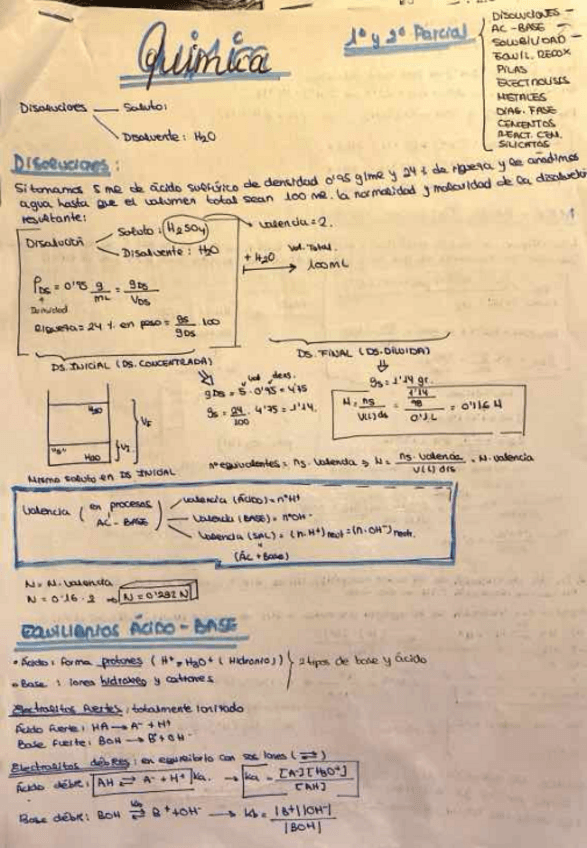 Química
1º y 2º Parcial
DISOLUCIONES -
AC-BASE -
SOLUBILIDAD -
EQUIL. REDOX
PILAS
ELECTROLISIS
METALES
DIAG. FASE
CEMENTOS
REACT. CEM.
SILICATOS
Disoluciones
Soluto:
Disolvente: H2O
Disoluciones:
Si tomamos 5 ml de ácido sulfúrico de densidad 0'95 g/ml y 24 % de riqueza y le añadimos
agua hasta que el volumen total sean 100 ml. la normalidad y molaridad de la disolución
resultante:
Disolución
Soluto: H2SO4 → valencia = 2.
Disolvente: H2O
+ H2O
vol. Total.
100mL
ρDS = 0'95 g/mL = gDS/VDS
Densidad
Riqueza = 24 % en peso = gs/gDS · 100
DS. INICIAL (DS. CONCENTRADA)
DS. FINAL (DS. DILUIDA)
vol dens.
gDS = 5 · 0'95 = 4'75
gs = 24/100 · 4'75 = 1'14.
gs = 1'14 gr.
M = ns/V(L)ds = (1'14/98)/0'1L = 0'116 M
H2O
"S" H2O
VF
VI
Mismo soluto en DS INICIAL
nº equivalentes = ns. Valencia ⇒ N = ns. Valencia/V(L) dis = M. valencia
Valencia (en procesos AC-BASE)
Valencia (ÁCIDO) = nºH+
Valencia (BASE) = nºOH-
Valencia (SAL) = (n.H+) neut = (n.OH-) neutr.
(Ác + Base)
N = M. Valencia
N = 0'16 . 2 → N = 0'232 N
EQUILIBRIOS ÁCIDO-BASE
• Ácido: forma protones (H+ = H3O+ (Hidronio)) } 2 tipos de base y ácido
• Base : iones hidroxilo y cationes
Electrolitos fuertes: totalmente ionizado
Ácido fuerte: HA → A- + H+
Base fuerte: BOH → B+ + OH-
Electrolitos débiles: en equilibrio con sus iones (⇌)
Ácido débil: AH ⇌ A- + H+ Ka. → Ka = [A-][H3O+]/[AH]
Base débil: BOH ⇌ B+ + OH- → Kb = |B+||OH-|/|BOH|